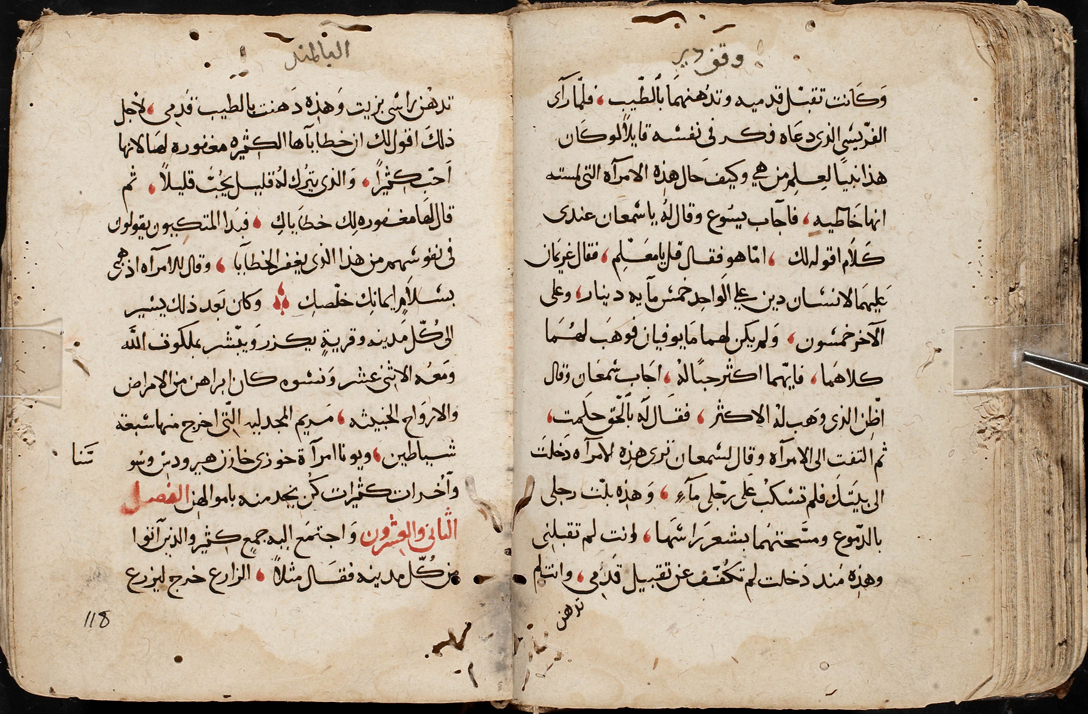 وقف دير
وكانت تقبل قدميه وتدهنهما بالطيب، فلما رآى
الفريسي الذي دعاه فكر في نفسه قايلاً لو كان
هذا نبيا لعلم من هي وكيف حال هذه الامرآه التي لمسته
انها خاطيه، فاجاب يسوع وقال له يا سمعان عندي
كلام اقوله لك، امّا هو فقال قل يا معلم، فقال غريمان
عليهما لانسان دين على الواحد خمس مايه دينار، وعلى
الآخر خمسون، ولم يكن لهما ما يوفيان فوهب لهما
كلاهما، فايهما اكثر حبًا له، اجاب سمعان وقال
اظن الذي وهب له الاكثر، فقال له بالحق حكمت،
ثم التفت الى الامرآه وقال لسمعان ترى هذه لامرآه دخلت
الى بيتك فلم تسكب على رجلى مآء، وهذه بلت رجلى
بالدموع ومسحتهما بشعر راسها، وانت لم تقبلنى
وهذه منذ دخلت لم تكفف عن تقبيل قدمي، وانت لم
تدهن
البلمند
تدهن راسى بزيت وهذه دهنت بالطيب قدمى، لاجل
ذلك اقول لك ان خطاياها الكثيره مغفوره لها لانها
احبت كثيرًا، والذى يترك له قليل يحب قليلاً، ثم
قال لها مغفوره لك خطاياك، فبدا المتكيون يقولون
فى نفوسهم من هذا الذى يغفر الخطايا، وقال للامرآه اذهبى
بسلام ايمانك خلصك وكان بعد ذلك يسير
الى كل مدينه وقرية يكرز ويبشر بملكوت الله
ومعه الاثنى عشر ونسوه كان ابراهن من الامراض
والارواح الخبيثه، مريم المجدليه التى اخرج منها سبعة
شياطين، ويونا امرآة خوزى خازن هيرودس وسو
سنا
وآخرات كثيرات كن يخدمنه باموالهن الفصل
الثانى والعشرون واجتمع اليه جمع كثير والذين آتوا
من كل مدينه فقال مثلاً، الزارع خرج ليزرع
118